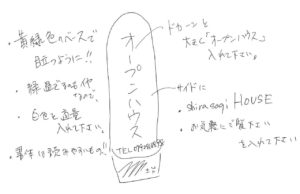 ・黄緑色のベースで
目立つように!!
・緑単色でも可
・白色と
入れて下さい。
・書体は読みやすいもの!!
オープンハウス
TEL
ドカーンと
大きく「オープンハウス」
入れて下さい。
サイドに
・shirasagi HOUSE
・お気軽にご覧下さい
を入れて下さい